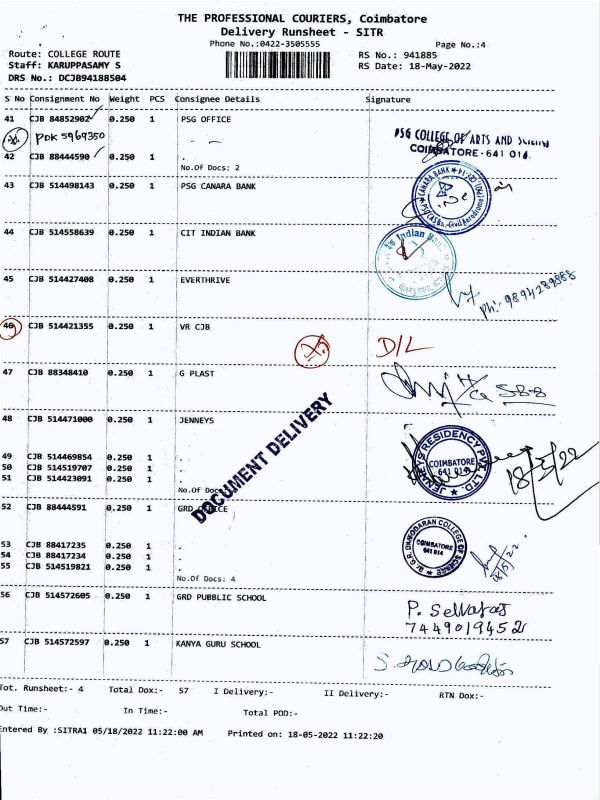 THE PROFESSIONAL COURIERS, Coimbatore
Delivery Runsheet - SITR
Phone No.:0422-3505555 Page No.:4
Route: COLLEGE ROUTE RS No.: 941885
Staff: KARUPPASAMY S RS Date: 18-May-2022
DRS No.: DCJB94188504
S No Consignment No Weight PCS Consignee Details Signature
41 CJB 84852902 0.250 1 PSG OFFICE
PDK 5969350
PSG COLLEGE OF ARTS AND
COIMBATORE-641 014.
42 CJB 88444590 0.250 1 .
No.Of Docs: 2
43 CJB 514498143 0.250 1 PSG CANARA BANK
CANARA BANK
44 CJB 514558639 0.250 1 CIT INDIAN BANK
Indian
45 CJB 514427408 0.250 1 EVERTHRIVE
Ph: 9894289888
46 CJB 514421355 0.250 1 VR CJB
D/L
47 CJB 88348410 0.250 1 G PLAST
48 CJB 514471000 0.250 1 JENNEYS
JENNEYS RESIDENCY PVT. LTD
COIMBATORE
641 014
18/5/22
49 CJB 514469854 0.250 1 .
50 CJB 514519707 0.250 1 .
51 CJB 514423091 0.250 1 .
No.Of Docs
DOCUMENT DELIVERY
52 CJB 88444591 0.250 1 GRD OFFICE
COIMBATORE
641 014
18/5/22
53 CJB 88417235 0.250 1 .
54 CJB 88417234 0.250 1 .
55 CJB 514519821 0.250 1 .
No.Of Docs: 4
56 CJB 514572605 0.250 1 GRD PUBBLIC SCHOOL
P. Selvaraj
7449019452
57 CJB 514572597 0.250 1 KANYA GURU SCHOOL
Tot. Runsheet:- 4 Total Dox:- 57 I Delivery:- II Delivery:- RTN Dox:-
Out Time:- In Time:- Total POD:-
Entered By :SITRA1 05/18/2022 11:22:00 AM Printed on: 18-05-2022 11:22:20